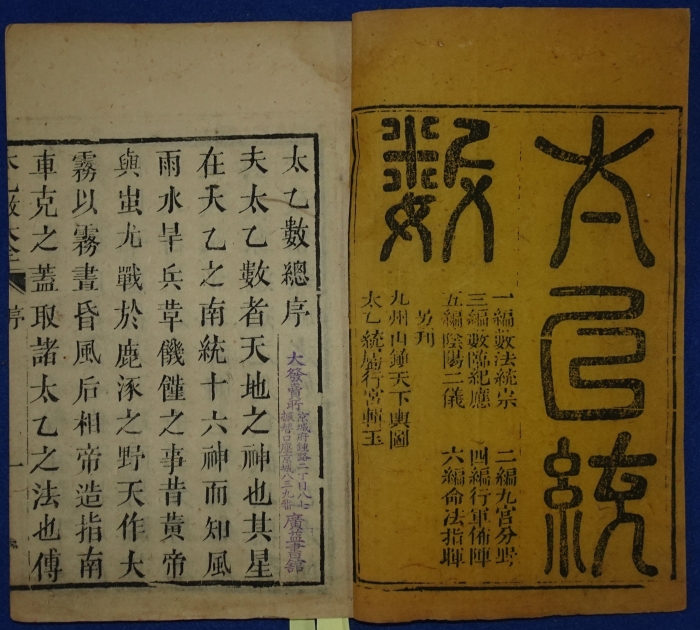 太乙統
數
一編數法統宗 二編九宮分野
三編數臨紀應 四編行軍佈陣
五編陰陽二儀 六編命法指暉
另刋
九州山鎮天下輿圖
太乙統
太乙數總序
夫太乙數者天地之神也其星
在天乙之南統十六神而知風
雨水旱兵革饑饉之事昔黃帝
與蚩尤戰於鹿涿之野天作大
霧以霧晝昏風后相帝造指南
車克之蓋取諸太乙之法也傳
大發賣所
廣益書舘
序
一